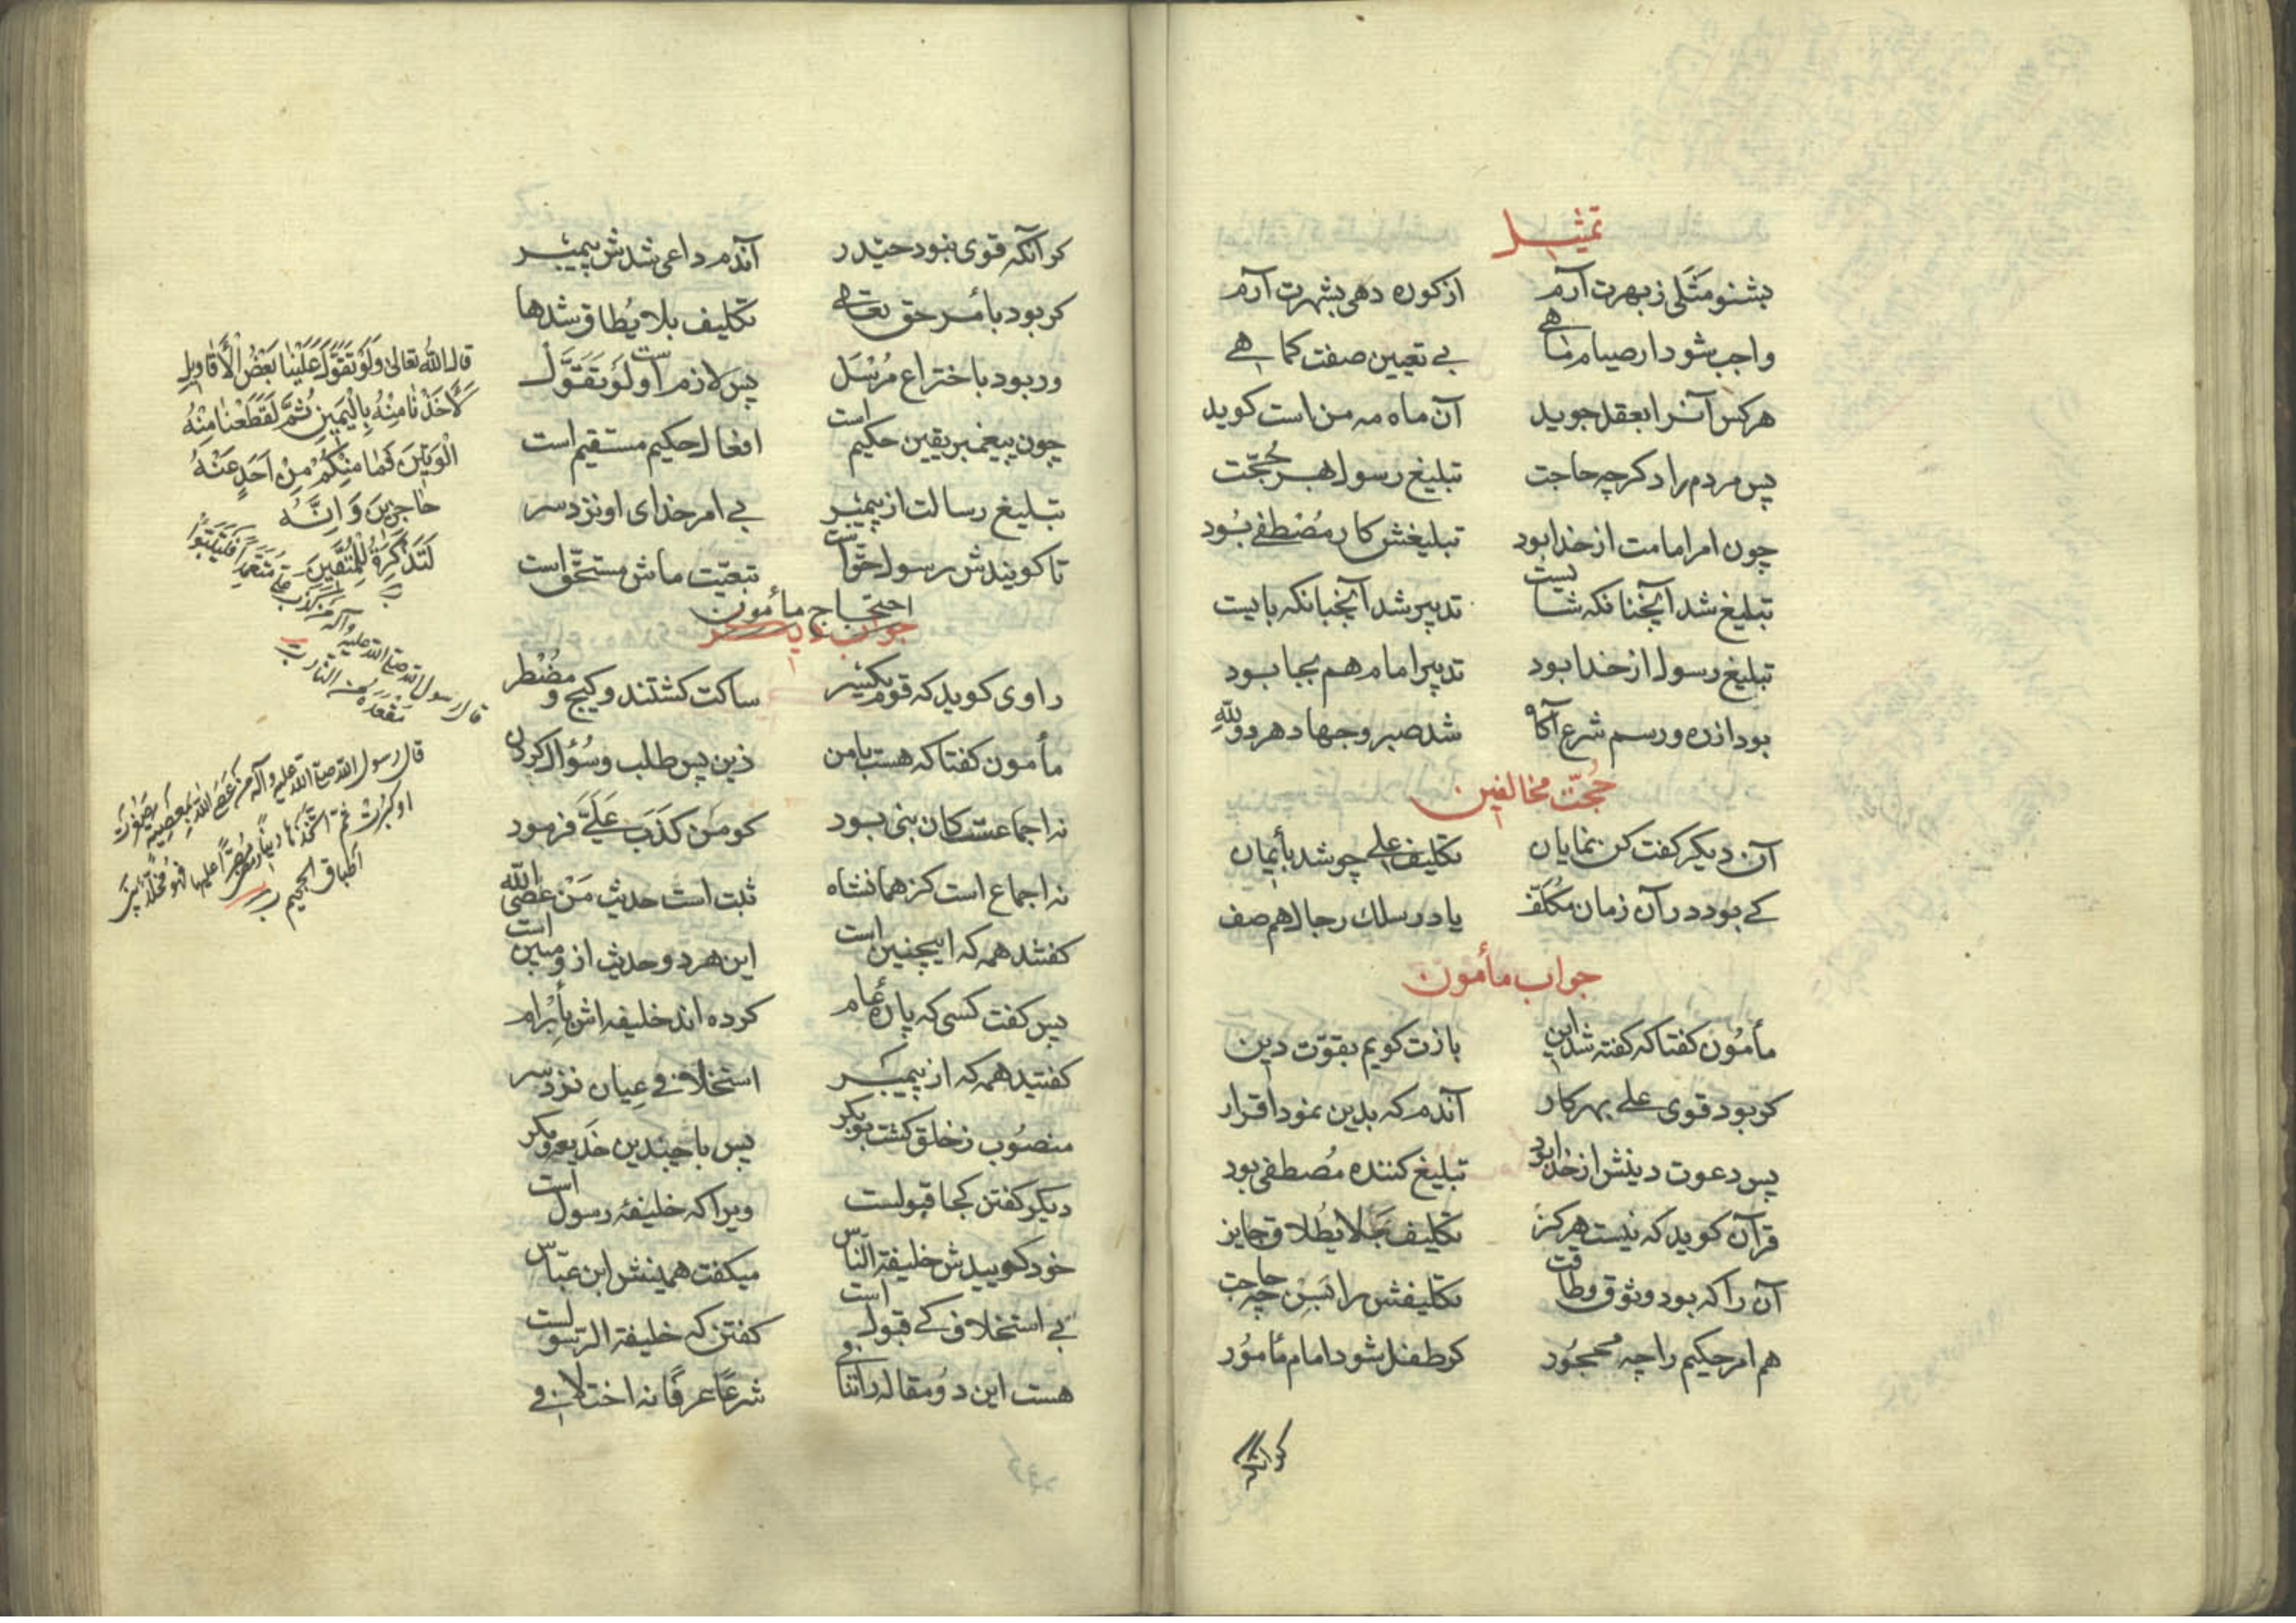 تمثیل
بشنو مثلی ز بهرت آرم از کوره دهی بشهرت آرم
واجب شود ار صیام ماهی بی تعیین صفت کماهی
هر کس آنرا بعقل جوید آن ماه مه من است کوید
پس مردم را دکر چه حاجت تبلیغ رسول بهر حجّت
چون امر امامت از خدا بود تبلیغش کار مُصْطفی بُود
تبلیغ شد آنچنانکه شایست تدبیر شد آنچنانکه بایست
تبلیغ رسول از خدا بود تدبیر امام هم بجا بود
بود از ره و رسم شرع آکاه شد صبر و جهاد هر دو لله
حُجّت مخالفین
آن دیکر کفت کن نمایان تکلیف علی چو شد بأیمان
کی بود در آن زمان مکلّف یا در سلك رجال هم صف
جواب مأمون
مأمُون کفتا که کفته شد این بازت کویم بقوّت دین
کو بود قوی علی بهر کار آندم که بدین نمود اقرار
پس دعوت دینش از خدا بود تبلیغ کننده مُصطفی بود
قرآن کوید که نیست هرکز تکلیف بَلایُطلاق جایز
آن را که بود وثوق وطاقت تکلیفش را بَس چه حاجت
هم امر حکیم را چه محجُور کر طفل شود امام مأمُور
کر آنکه
کر آنکه قوی نبود حیدر آندم داعی شدش پیمبر
کر بود بأمر حق تعالی تکلیف بلایُطاق شدها
ور بود باختراع مُرْسَل پس لازم اوست لَوْ تَقَوَّلْ
چون پیغمبر یقین حکیم است افعال حکیم مستقیم است
تبلیغ رسالت از پیمبر بی امر خدای او نزد سر
تا کویندش رسول حقّ است تبعیّت ماش مستحقّ است
احتجاج مأمون
جواب دیکر
راوی کوید که قوم یکسر ساکت کشتند و کیج و مضْطر
مأمون کفتا که هست با من زین پس طلب و سُؤال کردن
نه اجماعست کان نبی بود کو مَن کَذَبَ عَلَیَّ فرمود
نه اجماع است کز همانشاه ثبت است حدیث مَنْ عَصَی الله
کفتند همه که اینچنین است این هر دو حدیث ازو مبین است
پس کفت کسی که پارهٔ عام کرده اند خلیفه اش بأبْرام
کفتید همه که از پیمبر استخلافی عیان نزد سر
منصُوب ز خلق کشت بوبکر پس با چندین خَدیعه و مکر
دیکر کفتن کجا قبولست ویرا که خلیفهٔ رسول است
خود کوییدش خلیفة النّاس میکفت همینش ابن عبّاس
بی استخلاف کی قبول است کفتن که خلیفة الرّسولست
هست این دُو مقاله را تنافی شرعًا عرفًا نه اختلافی
قال الله تعالی وَلَوْ تَقَوَّلَ عَلَیْنَا بَعْضَ الْأَقَاوِیلِ
لَأَخَذْنَا مِنْهُ بِالْیَمِینِ ثُمَّ لَقَطَعْنَا مِنْهُ
الْوَتِینَ فَمَا مِنْکُمْ مِنْ أَحَدٍ عَنْهُ
حَاجِزِینَ وَ اِنَّهُ
لَتَذْکِرَةٌ لِلْمُتَّقِینَ
قال رسول الله صلی الله علیه وآله من کذب علی متعمدا فلیتبوّأ
مقعده من النار
قال رسول الله صلی الله علیه وآله من عصی الله بمعصیة صغرت
او کبرت ثم اتخذها دینا
اطباق الجحیم